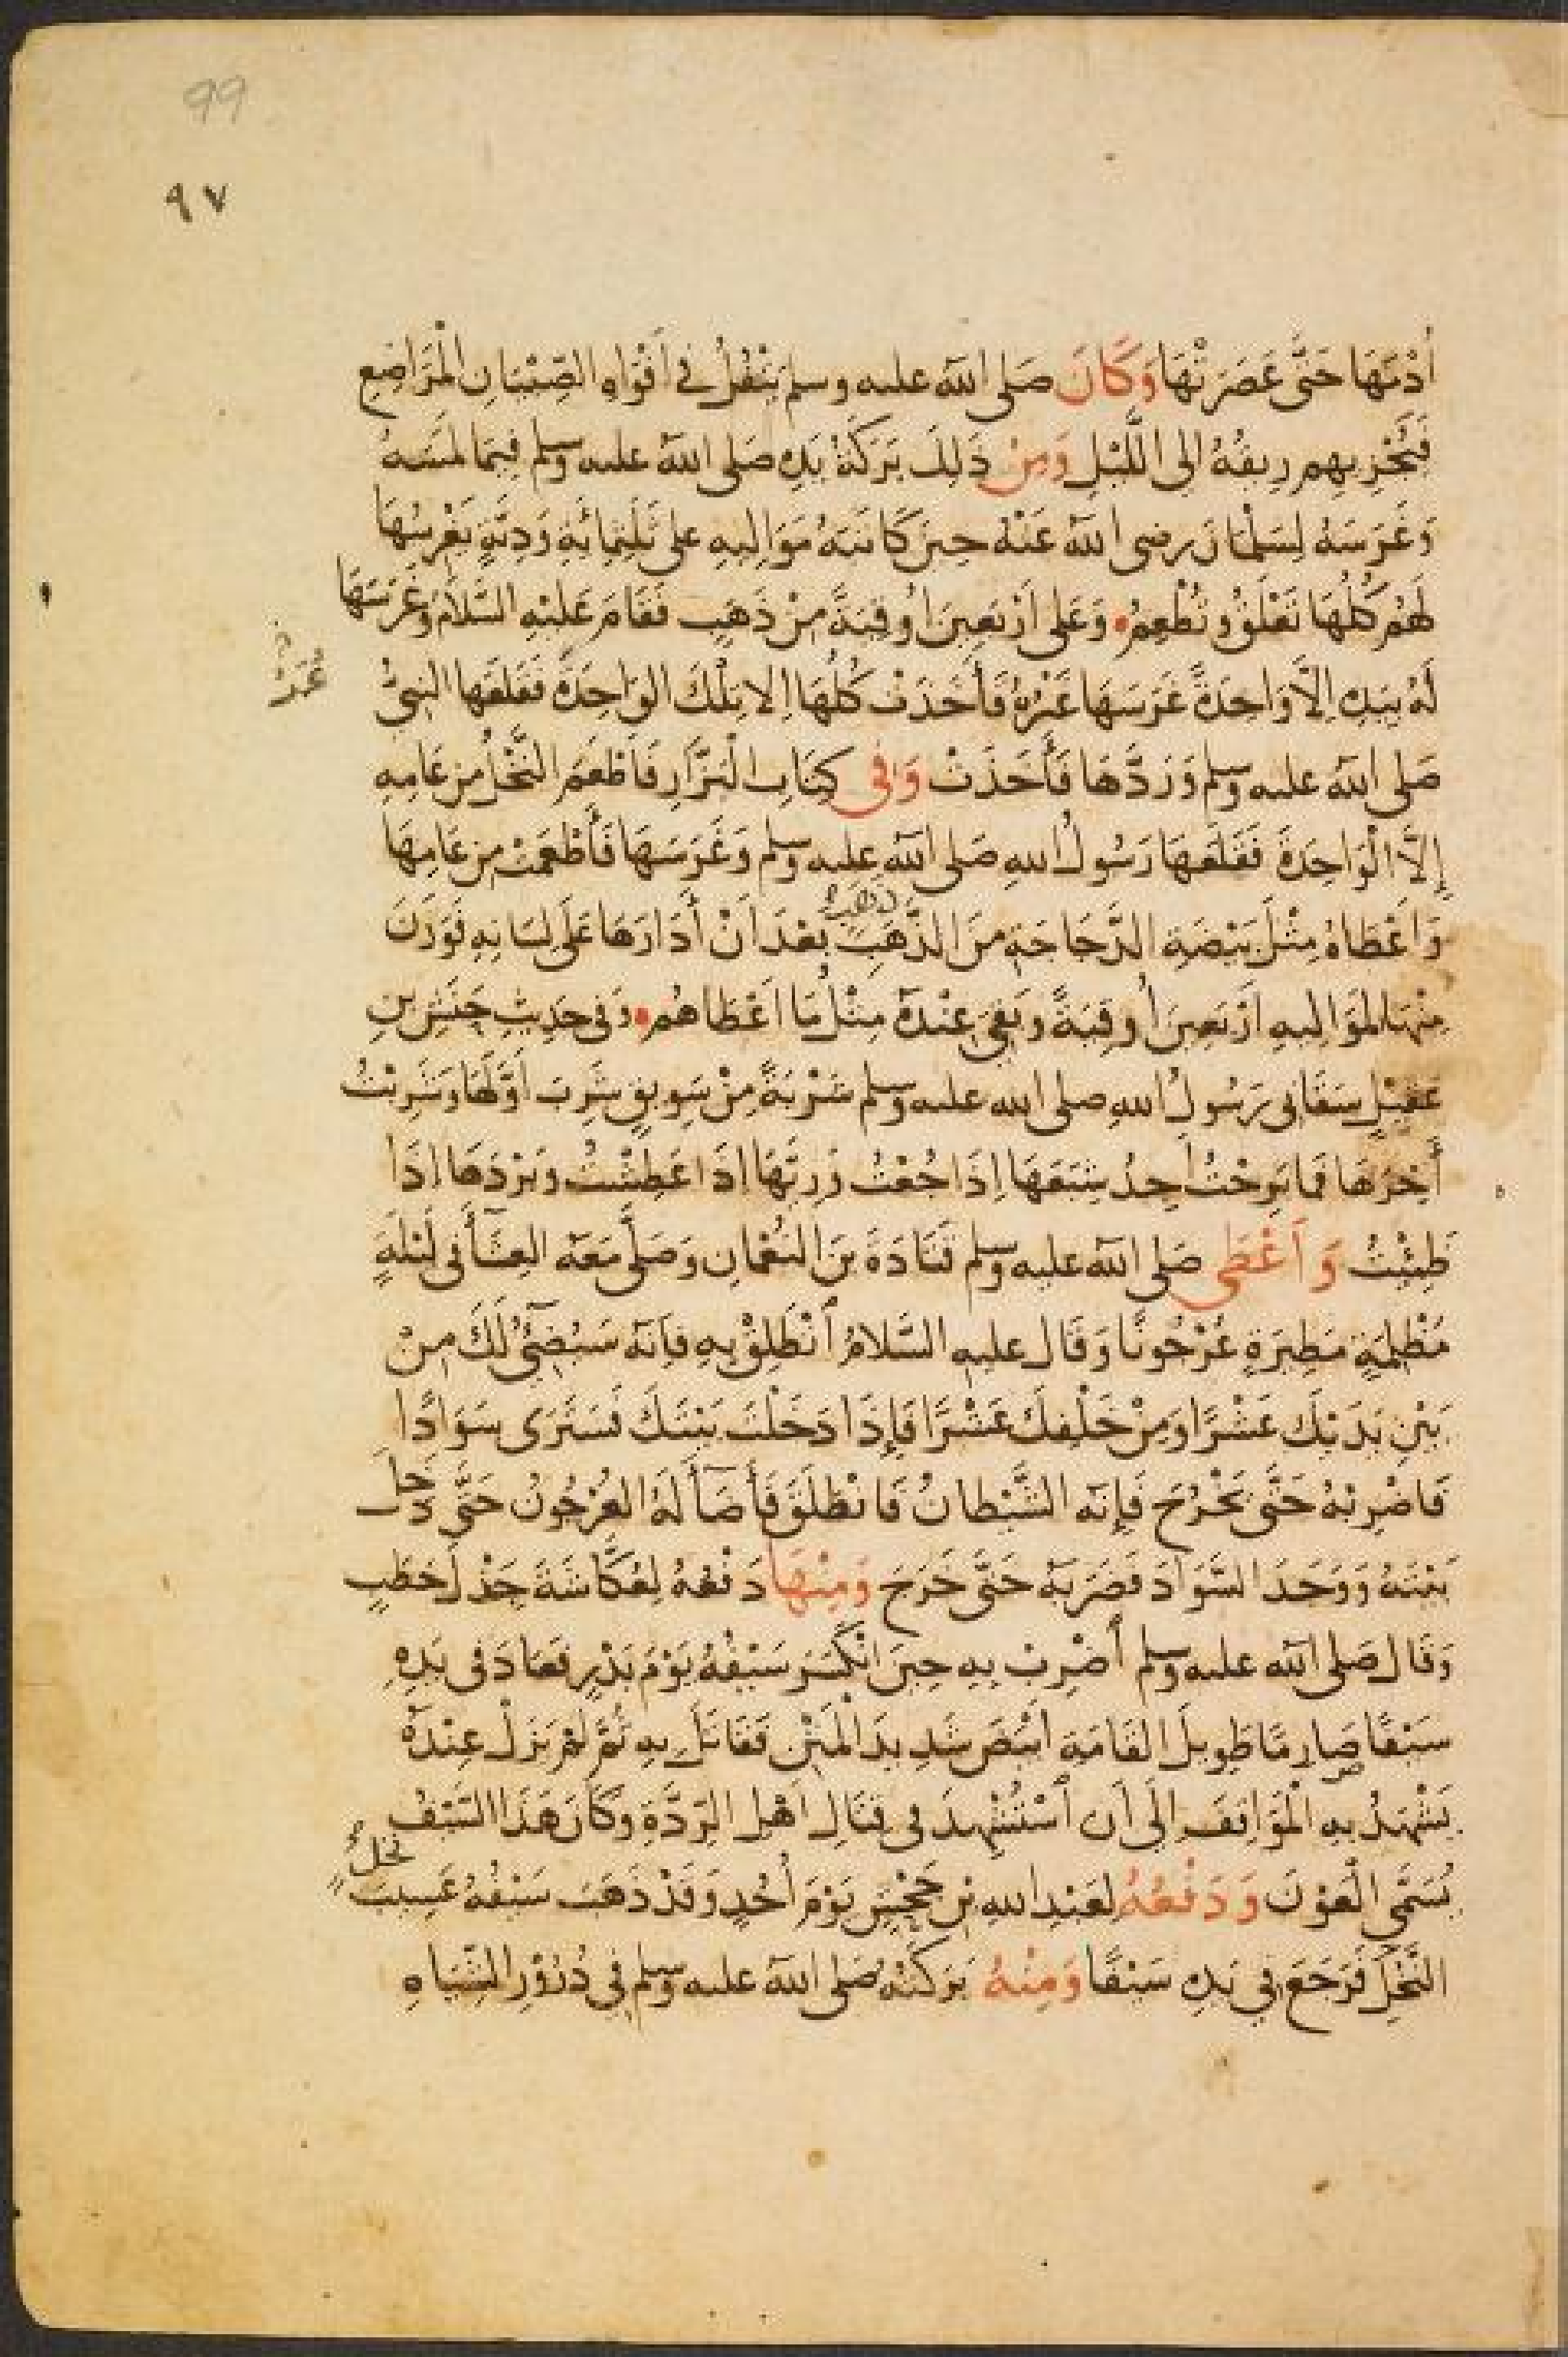 99
٩٧
أُدْمَهَا حَتَّى عَصَرَتْهَا وَكَانَ صَلى الله عليه وسلم يَتْفُلُ في أَفْوَاهِ الصِّبْيَانِ المَرَاضِعِ
فَيُجْزِيهِم رِيقُهُ الى اللَّيْلِ وَمِنْ ذَلِكَ بَرَكَةُ يَدِهِ صَلى الله عليه وسلم فِيمَا لمَسَهُ
وَغَرَسَهُ لِسَلْمَانَ رضى الله عَنْهُ حِينَ كَاتَبَهُ مَوَالِيهِ على ثَلَثِمِائَةِ وَدِيَّةٍ يَغْرِسُهَا
لَهُمْ كُلُّهَا تَعْلَقُ وتُطْعِمُ وَعَلى أَرْبَعِينَ اُوقِيَةً مِنْ ذَهَبٍ فَقَامَ عَلَيْهِ السَّلامُ وَغَرَسَهَا
لَهُ بِيَدِهِ اِلَّا وَاحِدَةً غَرَسَهَا غَيْرُهُ فَأَخَذَتْ كُلُّهَا اِلا تِلْكَ الوَاحِدَةَ فَقَلَعَها النبىُّ
صَلى الله عليه وسلم وَرَدَّهَا فَأَخَذَتْ وَفى كِتَابِ البَزَّارِ فَاَطْعَمَ النَّخْلُ مِن عَامِهِ
إِلَّا الْوَاحِدَةَ فَقَلَعَهَا رَسُولُ اللهِ صَلى الله عليه وسلم وَغَرَسَهَا فَأَطْعَمَتْ مِن عَامِهَا
وَاَعْطَاهُ مِثْلَ بَيْضَةِ الدَّجَاجَةِ مِنَ الذَّهَبِ بَعْدَ اَنْ أَدَارَهَا عَلَى لِسَانِهِ فَوَزَنَ
ذَهَبٍ
مِنْهَا لمَوَالِيهِ اَرْبَعِينَ اُوقِيَةً وبَقِىَ عِنْدَهُ مِثْلُ مَا اَعْطَاهُم وَفى حَدِيثِ حَنَشِ بنِ
عَقِيلٍ سَقَانِى رَسُولُ اللهِ صلى الله عليه وسلم شَرْبَةً مِنْ سَوِيقٍ شَرِبَ اَوَّلَهَا وَشَرِبْتُ
أَخِرَهَا فَمَا بَرِحْتُ اَجِدُ شِبَعَهَا اِذَا جُعْتُ وَرِيَّهَا اِذَا عَطِشْتُ وَبَرْدَهَا اِذَا
ظَمِئْتُ وَاَعْطَى صَلى الله عليه وسلم قَتَادَةَ بنَ النُعْمَانِ وَصَلَّى مَعَهُ العِشَآءَ فى لَيْلَةٍ
مُظْلِمَةٍ مَطِيرَةٍ عُرْجُونًا وَقَالَ عليه السَّلامُ اَنْطَلِقْ بِهِ فاِنَّهُ سَيُضِىءُ لَكَ مِنْ
بَيْنِ يَدَيْكَ عَشْرًا وَمِنْ خَلْفِكَ عَشْرًا فَإِذَا دَخَلْتَ بَيْتَكَ فَسَتَرَى سَوَادًا
فَاضْرِبْهُ حَتَّى يَخْرُجَ فَإِنَّهُ الشَّيْطَانُ فَانْطَلَقَ فَأَضَآءَ لَهُ العُرْجُونُ حَتَّى دَخَلَ
بَيْتَهُ وَوَجَدَ السَّوَادَ فَضَرَبَهُ حَتَّى خَرَجَ وَمِنْهَا دَفْعُهُ لِعُكَّاشَةَ جِذْلَ حَطَبٍ
وَقَالَ صَلى الله عليه وسلم اَضْرِبْ بِهِ حِينَ انْكَسَرَ سَيْفُهُ يَوْمَ بَدْرٍ فَعَادَ فى يَدِهِ
سَيْفًا صَارِمًا طَوِيلَ القَامَةِ اَبْيَضَ شَدِيدَ المَتْنِ فَقَاتَلَ بِهِ ثُمَّ لَمْ يَزَلْ عِنْدَهُ
يَشْهَدُ بِهِ الْمَوَاقِفَ اِلَى اَن اَسْتُشْهِدَ فى قِتَالِ اَهْلِ الرِّدَّةِ وَكَانَ هَذَا السَّيْفُ
يُسَمَّى الْعَوْنَ وَدَفْعُهُ لِعَبْدِ اللهِ بْنِ جَحْشٍ يَوْمَ أُحُدٍ وَقَدْ ذَهَبَ سَيْفُهُ عَسِيبَ
نَخْلٍ
النَّخْلِ فَرَجَعَ فِي يَدِهِ سَيْفًا وَمِنْهُ بَرَكَتُهُ صَلى الله عليه وسلم فِي دُرُورِ الشِّيَاهِ